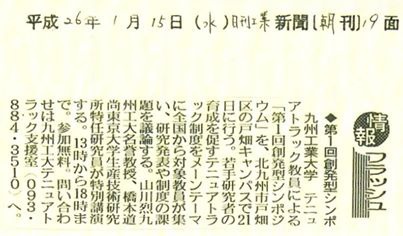 平成26年1月15日(水)日刊工業新聞[朝刊]19面
情報
フラッシュ
◆第1回創発型シンポ
九州工業大学 テニュ
アトラック教員による
「第1回創発型シンポジ
ウム」を、北九州市戸畑
区の戸畑キャンパスで21
日に行う。若手研究者の
育成を促すテニュアトラ
ック制度をメーンテーマ
に全国から対象教員が集
い、研究発表や制度の課
題を議論する。山川烈九
州工大名誉教授、橋本道
尚東京大学生産技術研究
所特任研究員が特別講演
する。13時から18時ま
で。参加無料。問い合わ
せは九州工大テニュアト
ラック支援室(093・
884・3510)へ。